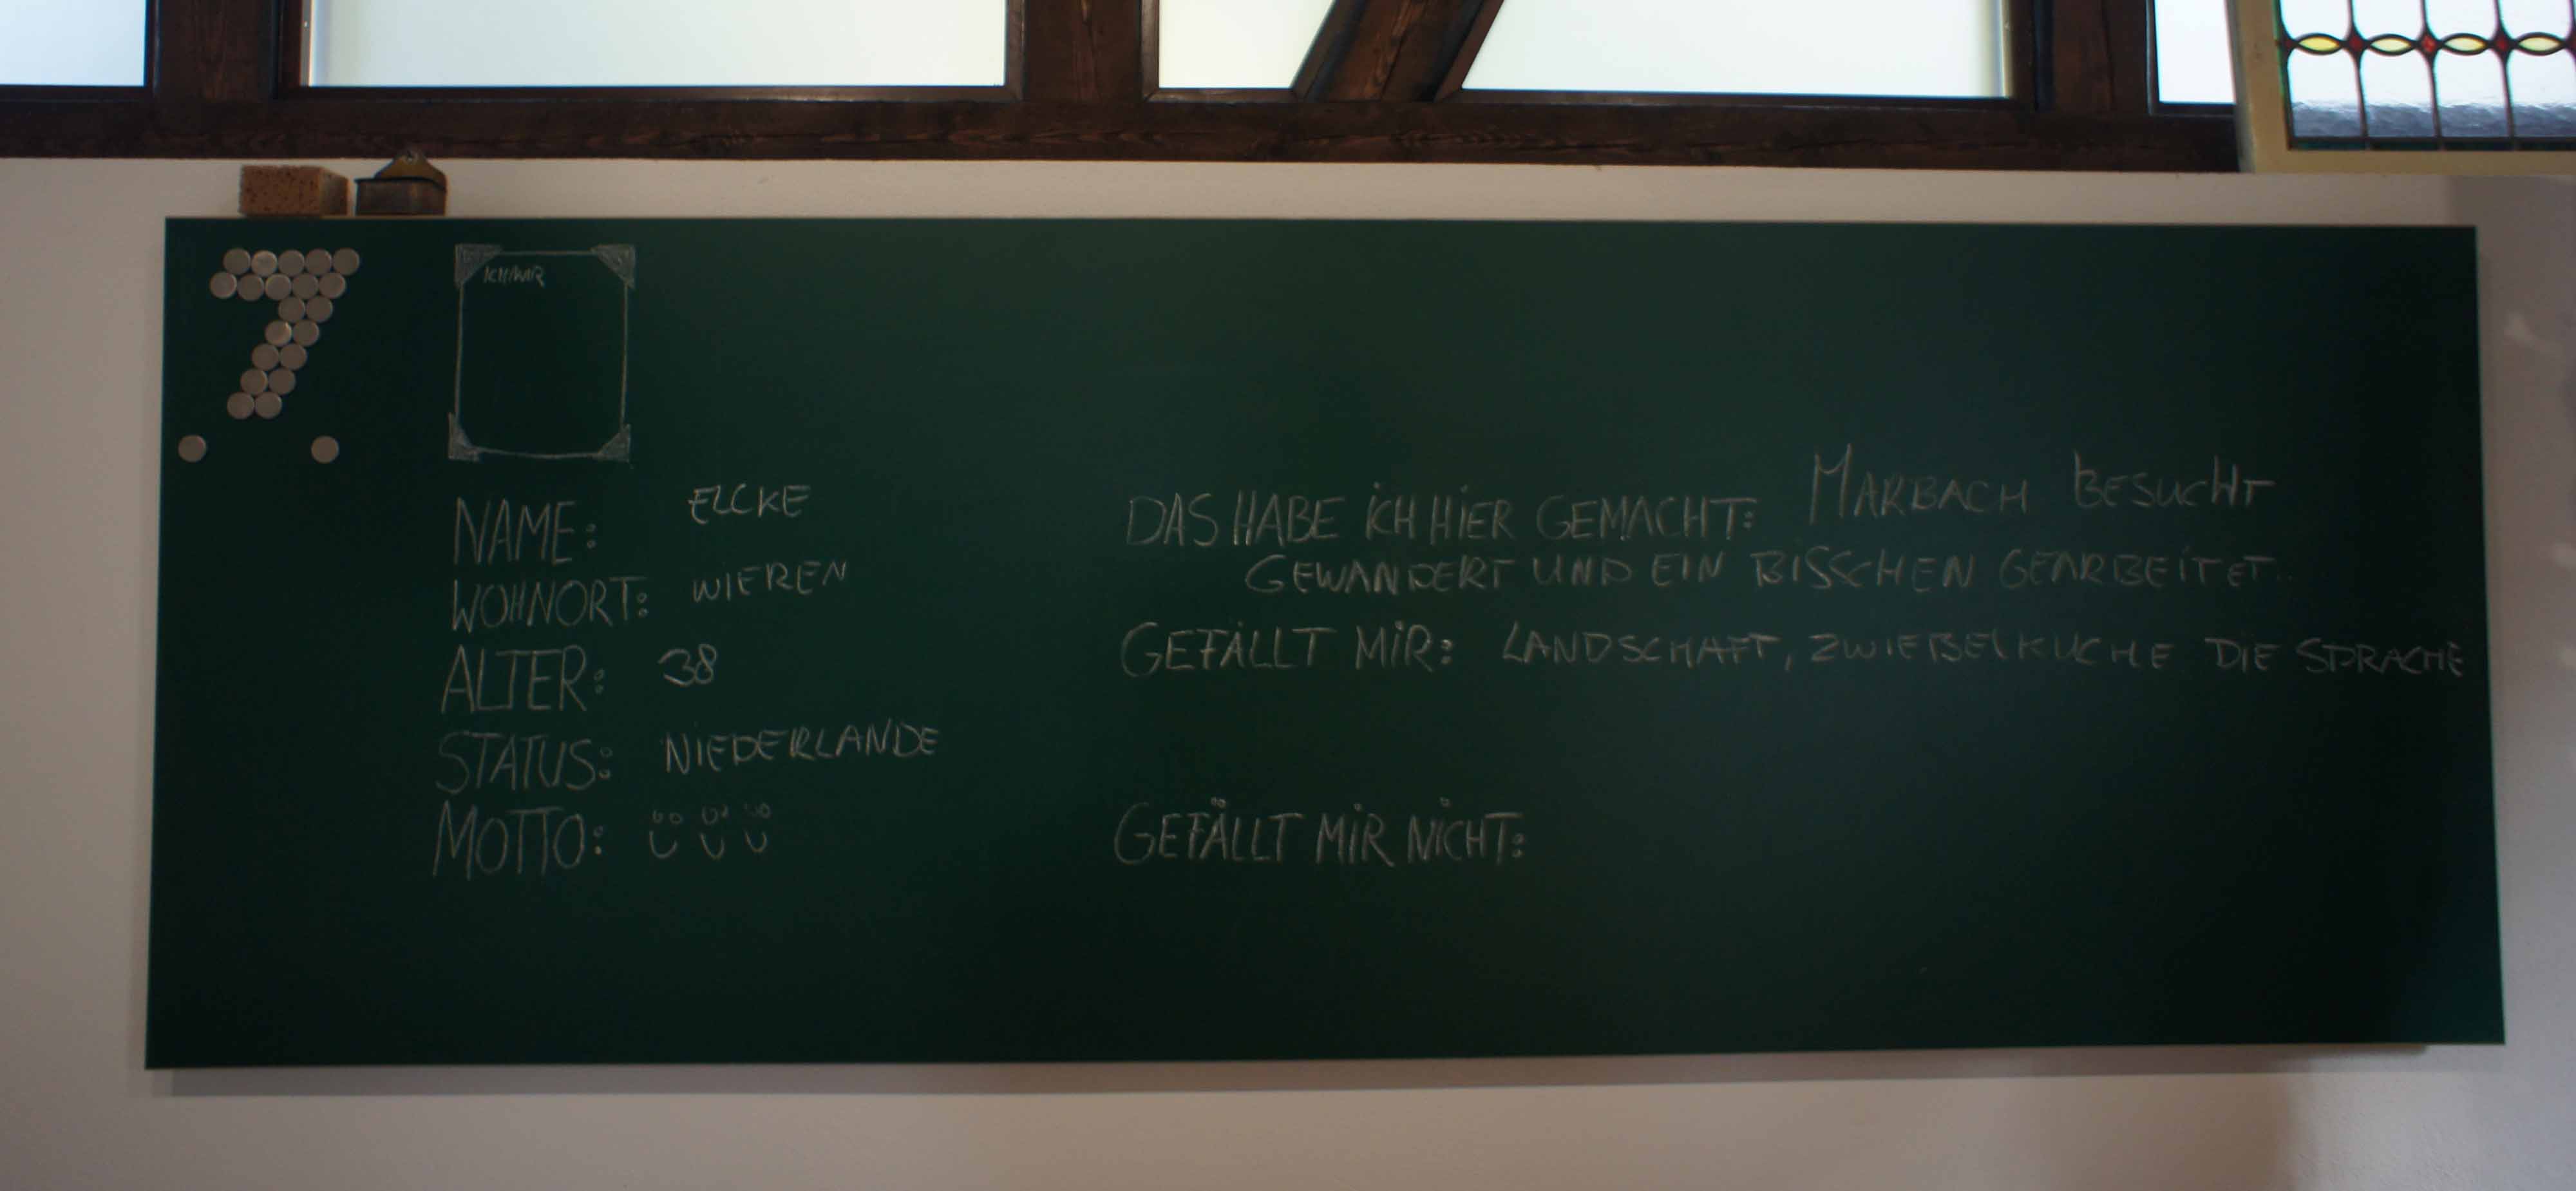 7
ICH/WIR
NAME: ELCKE
WOHNORT: WIEREN
ALTER: 38
STATUS: NIEDERLANDE
MOTTO:
DAS HABE ICH HIER GEMACHT: MARBACH BESUCHT
GEWANDERT UND EIN BISSCHEN GEARBEITET..
GEFÄLLT MIR: LANDSCHAFT, ZWIEBELKUCHE DIE SPRACHE
GEFÄLLT MIR NICHT: